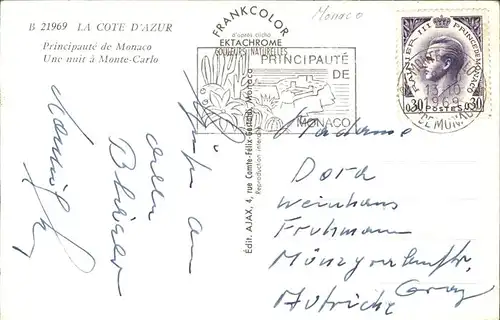 B 21969 LA COTE D'AZUR
Principauté de Monaco
Une nuit à Monte-Carlo
FRANKCOLOR
d'après cliché
EKTACHROME
COULEURS NATURELLES
Édit. AJAX, 4, rue Comte-Félix-Gastaldi, Monaco
Reproduction interdite
Monaco
PRINCIPAUTÉ
DE
MONACO
RAINIER III PRINCE DE MONACO
0,30 POSTES 0,30
13-10
1969
DE MONACO
an
alle
Madame
Dora
Weinhaus
Fruhmann
Graz
Autriche